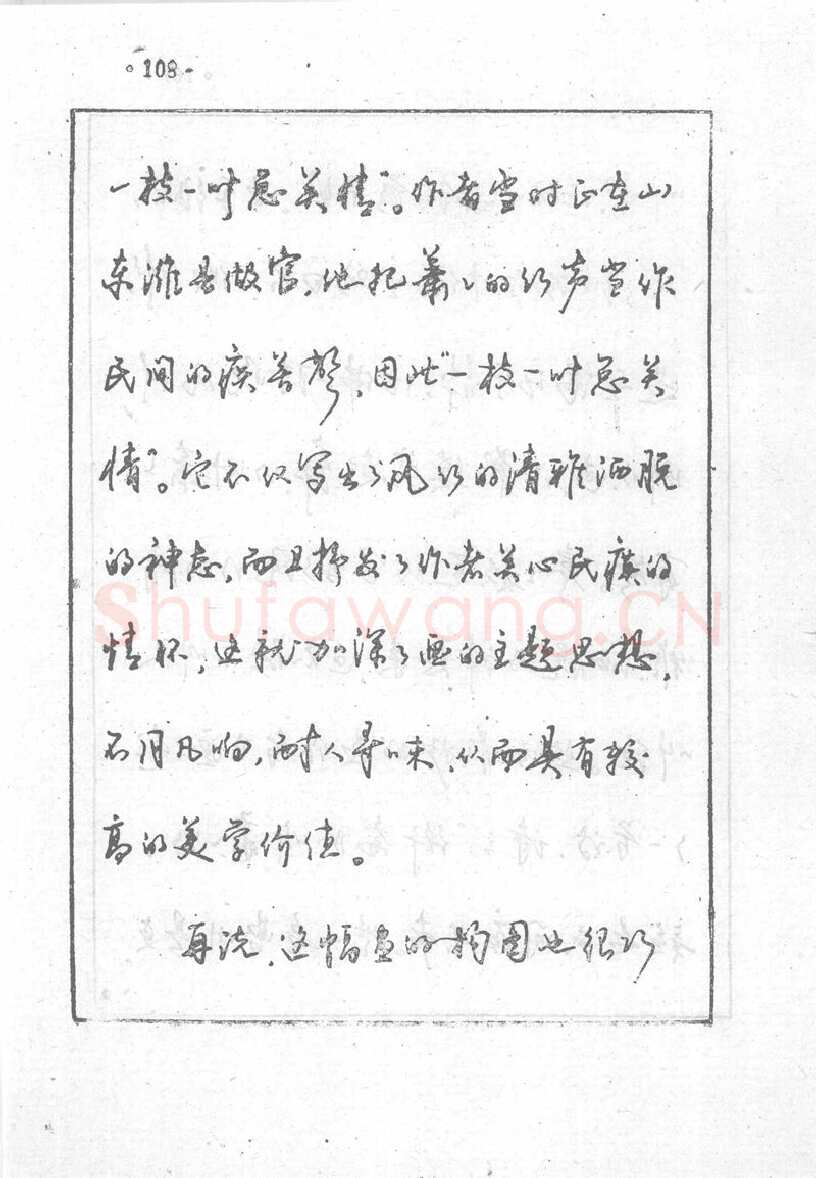 108
一枝一叶总关情”。作者当时正在山
东潍县做官，他把萧、的竹声当作
民间的疾苦声，因此“一枝一叶总关
情”。它不仅写出了风竹的清雅洒脱
的神态，而且抒发了作者关心民瘼的
情怀，这就加深了画的主题思想，
不同凡响，耐人寻味，从而具有较
高的美学价值。
再说，这幅画的构图也很巧
Shufawang.CN